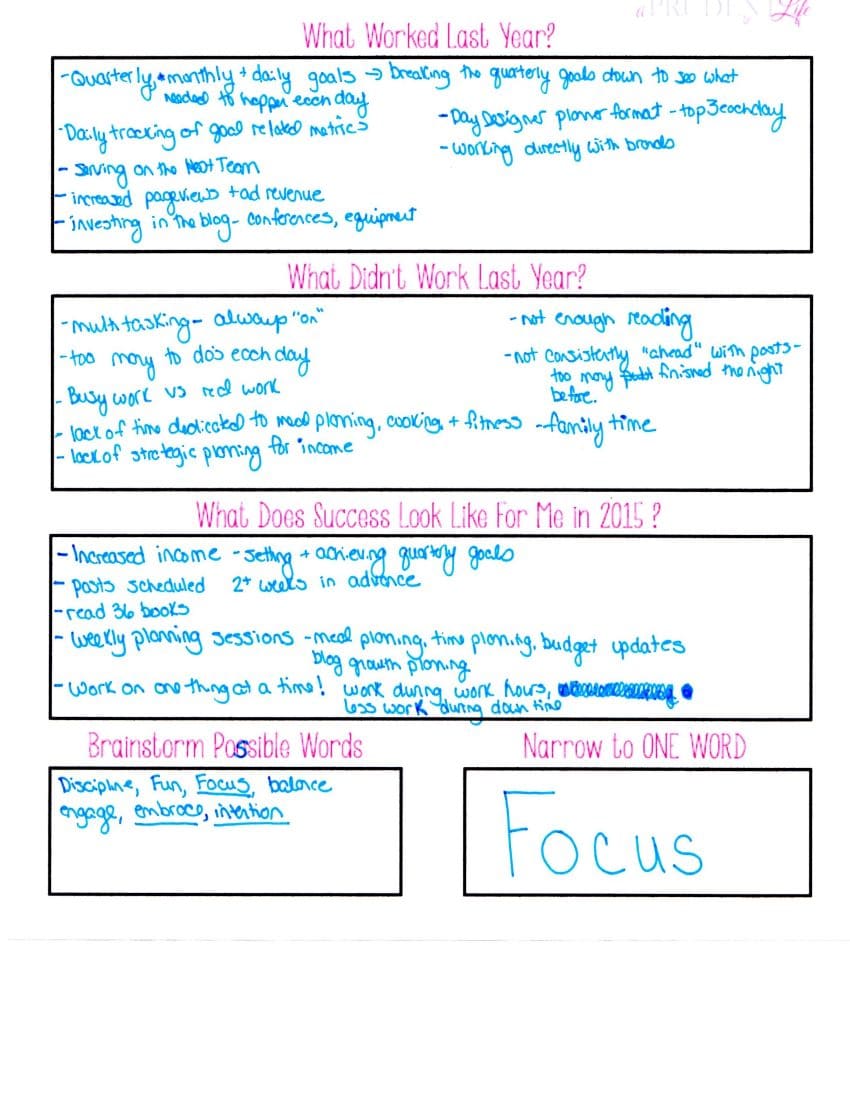 a PRUDENT Life
What Worked Last Year?
-Quarterly, monthly + daily goals → breaking the quarterly goals down to see what
needed to happen each day
-Daily tracking of goal related metrics
- Serving on the Team
- increased pageviews + ad revenue
- investing in the blog- conferences, equipment
-Day Designer planner format - top 3 each day
- working directly with brands
What Didn't Work Last Year?
-multitasking- always "on"
-too many to do's each day
- Busy work vs real work
- lack of time dedicated to meal planning, cooking, + fitness -family time
- lack of strategic planning for income
-not enough reading
-not consistently "ahead" with posts-
too many finished the night
before.
What Does Success Look Like For Me in 2015?
-Increased income -setting + achieving quarterly goals
- posts scheduled 2+ weeks in advance
-read 36 books
- weekly planning sessions -meal planning, time planning, budget updates
blog growth planning
-work on one thing at a time! work during work hours,
less work during down time
Brainstorm Possible Words
Discipline, Fun, Focus, balance
engage, embrace, intention
Narrow to ONE WORD
Focus